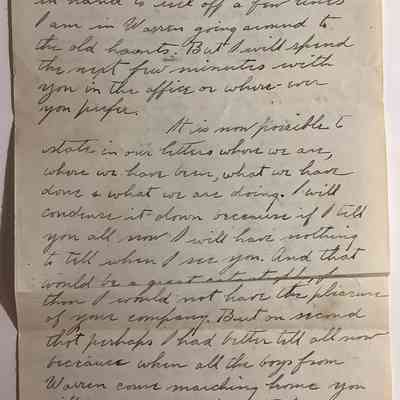 in hand to reel off a few lines
I am in Warren going around to
the old haunts. But I will spend
the next few minutes with
you in the office or where-ever
you prefer.
It is now possible to
state in our letters where we are,
where we have been, what we have
done & what we are doing. I will
condense it down because if I tell
you all now I will have nothing
to tell when I see you. And that
would be a great
then I would not have the pleasure
of your company. But on second
that perhaps I had better tell all now
because when all the boys from
Warren come marching home you